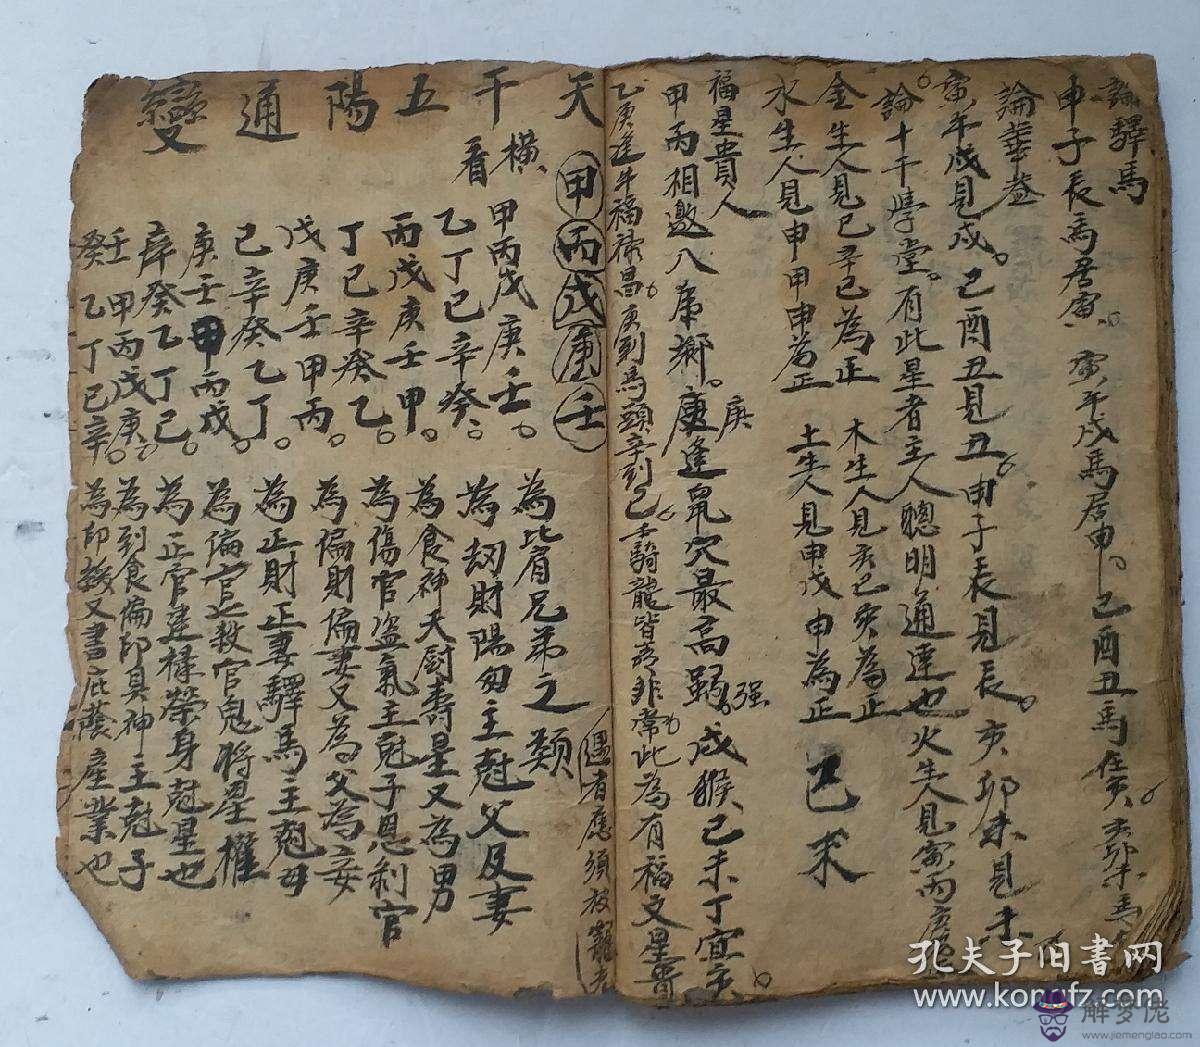 論驛馬
申子辰馬居寅。寅午戌馬居申。巳酉丑馬在亥。亥卯未馬
論華盖
寅午戌見戌。巳酉丑見丑。申子辰見辰。亥卯未見未
論十干學堂。有此星者主人聰明通達也 火生人見寅丙寅
金生人見巳辛巳為正 木生人見亥己亥為正
水生人見申甲申為正 土生人見申戊申為正 己未
福星貴人
甲丙相邀入虎鄉。庚逢鼠穴最高强。戊猴己未丁宜亥。
乙庚逢牛福祿昌。庚到馬頭辛到巳。壬騎龍皆喜非常此為有福文星貴
遇者應須被寵
天干五陽通變
橫看
甲丙戊庚壬
甲丙戊庚壬。為比肩兄弟之類
乙丁己辛癸。為刼財陽刃主尅父及妻
丙戊庚壬甲。為食神天厨壽星又為男
丁己辛癸乙。為傷官盗氣主尅子息剝官
戊庚壬甲丙。為偏財偏妻又為父為妾
己辛癸乙丁。為正財正妻驛馬主尅母
庚壬甲丙戊。為偏官七殺官鬼將星權
辛癸乙丁己。為正官建祿榮身尅星也
壬甲丙戊庚。為到食偏印具神主尅子
癸乙丁己辛。為印綬又書庇蔭產業也
孔夫子旧书网
www.kongfz.com
解梦佬
www.jiemenglao.com